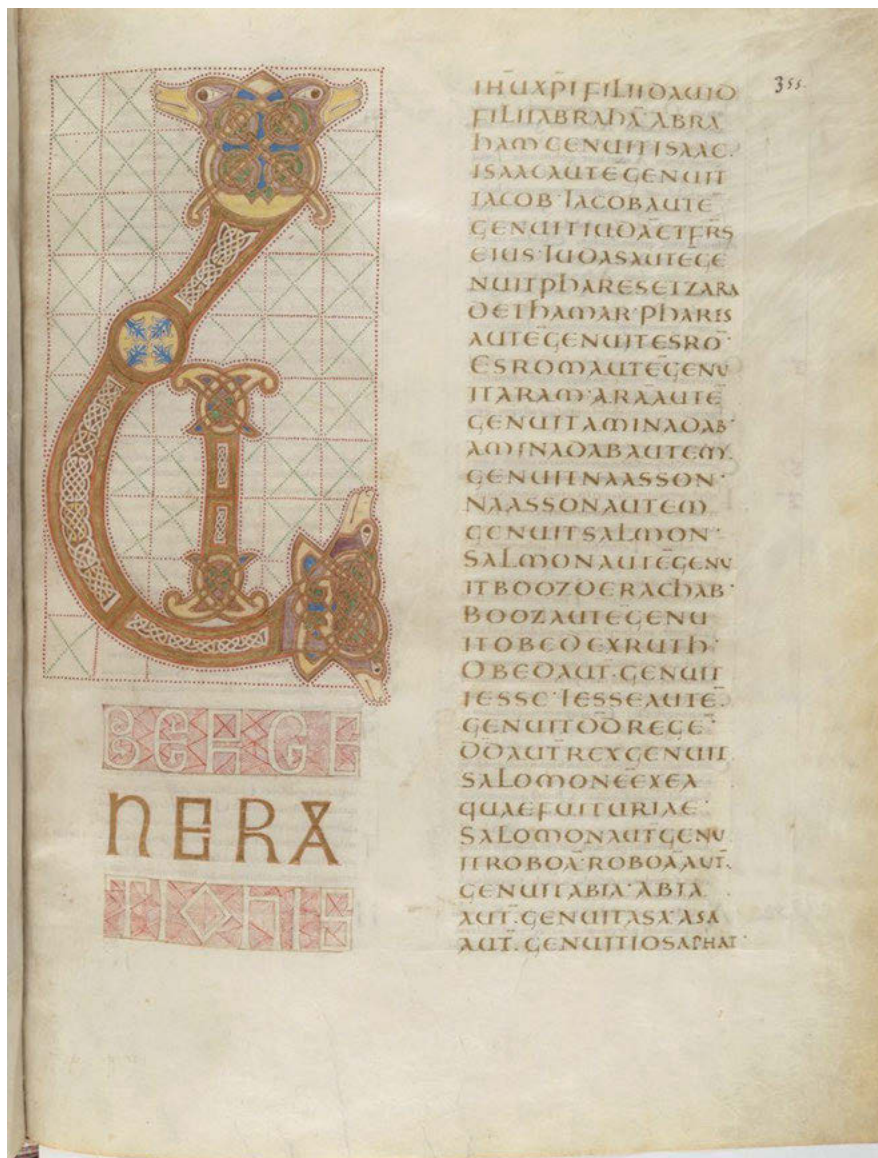 LI
BERGE
NERA
TIONIS
355.
IHUXPI FILII DAUID
FILII ABRAHĀ· ABRA
HAM GENUIT ISAAC·
ISAAC AUTĒ GENUIT
IACOB· IACOB AUTĒ
GENUIT IUDĀ ET FRS
EIUS· IUDAS AUTĒ GE
NUIT PHARES ET ZARA
DE THAMAR· PHARES
AUTĒ GENUIT ESRO͞·
ESROM AUTĒ GENU
IT ARAM· ARĀ AUTĒ
GENUIT AMINADAB·
AMINADAB AUTEM·
GENUIT NAASSON·
NAASSON AUTEM
GENUIT SALMON·
SALMON AUTĒ GENU
IT BOOZ DE RACHAB·
BOOZ AUTĒ GENU
IT OBED EX RUTH·
OBED AUT· GENUIT
IESSE· IESSE AUTĒ·
GENUIT DD̄ REGĒ·
DD̄ AUT REX GENUIT
SALOMONĒ EX EA
QUAE FUIT URIAE·
SALOMON AUT GENU
IT ROBOĀ· ROBOĀ AUT·
GENUIT ABIA· ABIA
AUT· GENUIT ASA· ASA
AUT· GENUIT IOSAPHAT·